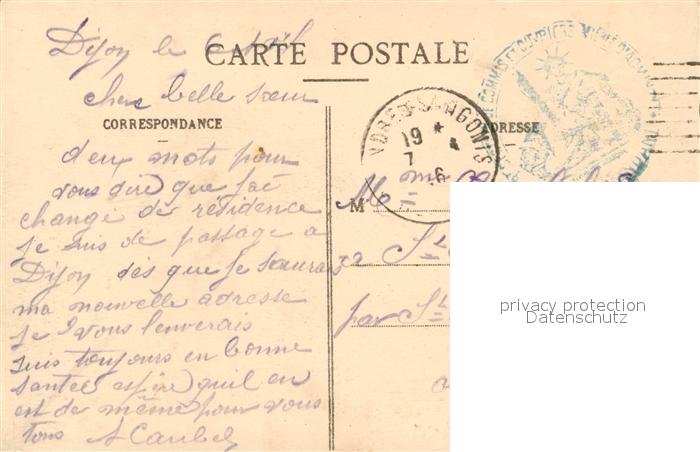 Dijon le 6
CARTE POSTALE
chere belle sœur
CORRESPONDANCE
deux mots pour
vous dire que jai
changé de résidence
je suis de passage a
Dijon dés que je saurais
ma nouvelle adresse
je vous l'enverais
suis toujours en bonne
santée espére quil en
est de même pour vous
tous
19 *
7 4
16
M
Mme
a St
par St
privacy protection
Datenschutz